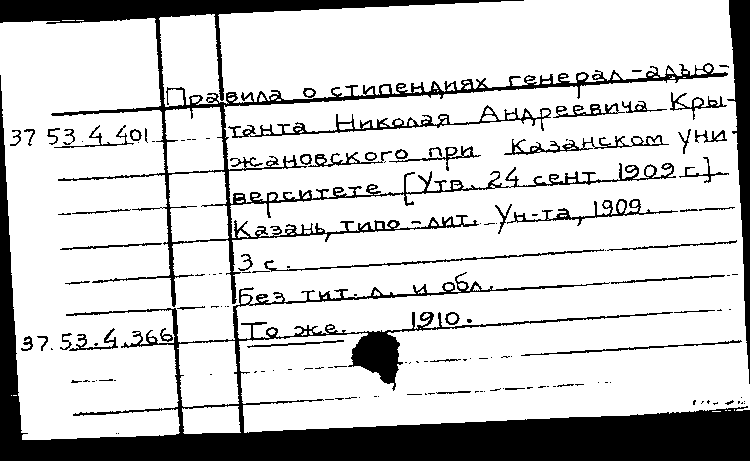 Правила о стипендиях генерал-адъю-
37 53.4.401 танта Николая Андреевича Кры-
жановского при Казанском уни-
верситете [Утв. 24 сент. 1909 г.].
Казань, типо-лит. Ун-та, 1909.
3 с.
Без тит. л. и обл.
37.53.4.366 То же. 1910.